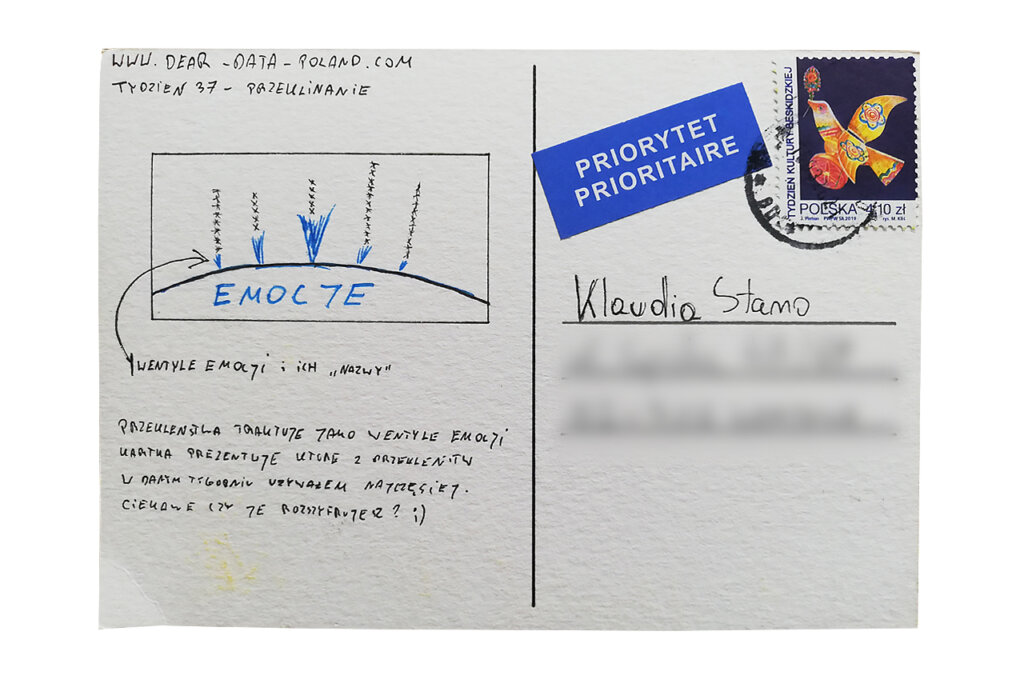 WWW.DEAR-DATA-POLAND.COM
TYDZIEŃ 37 - PRZEKLINANIE
EMOCJE
WENTYLE EMOCJI i ICH „NAZWY”
PRZEKLEŃSTWA TRAKTUJĘ JAKO WENTYLE EMOCJI
KARTKA PREZENTUJE KTÓRE Z PRZEKLEŃSTW
W DANYM TYGODNIU UŻYWAŁEM NAJCZĘŚCIEJ.
CIEKAWE CZY JE ROZSZYFRUJESZ? ;)
PRIORYTET
PRIORITAIRE
TYDZIEŃ KULTURY BESKIDZKIEJ
POLSKA 4,10 zł
PWPW SA 2019
Klaudia Stano